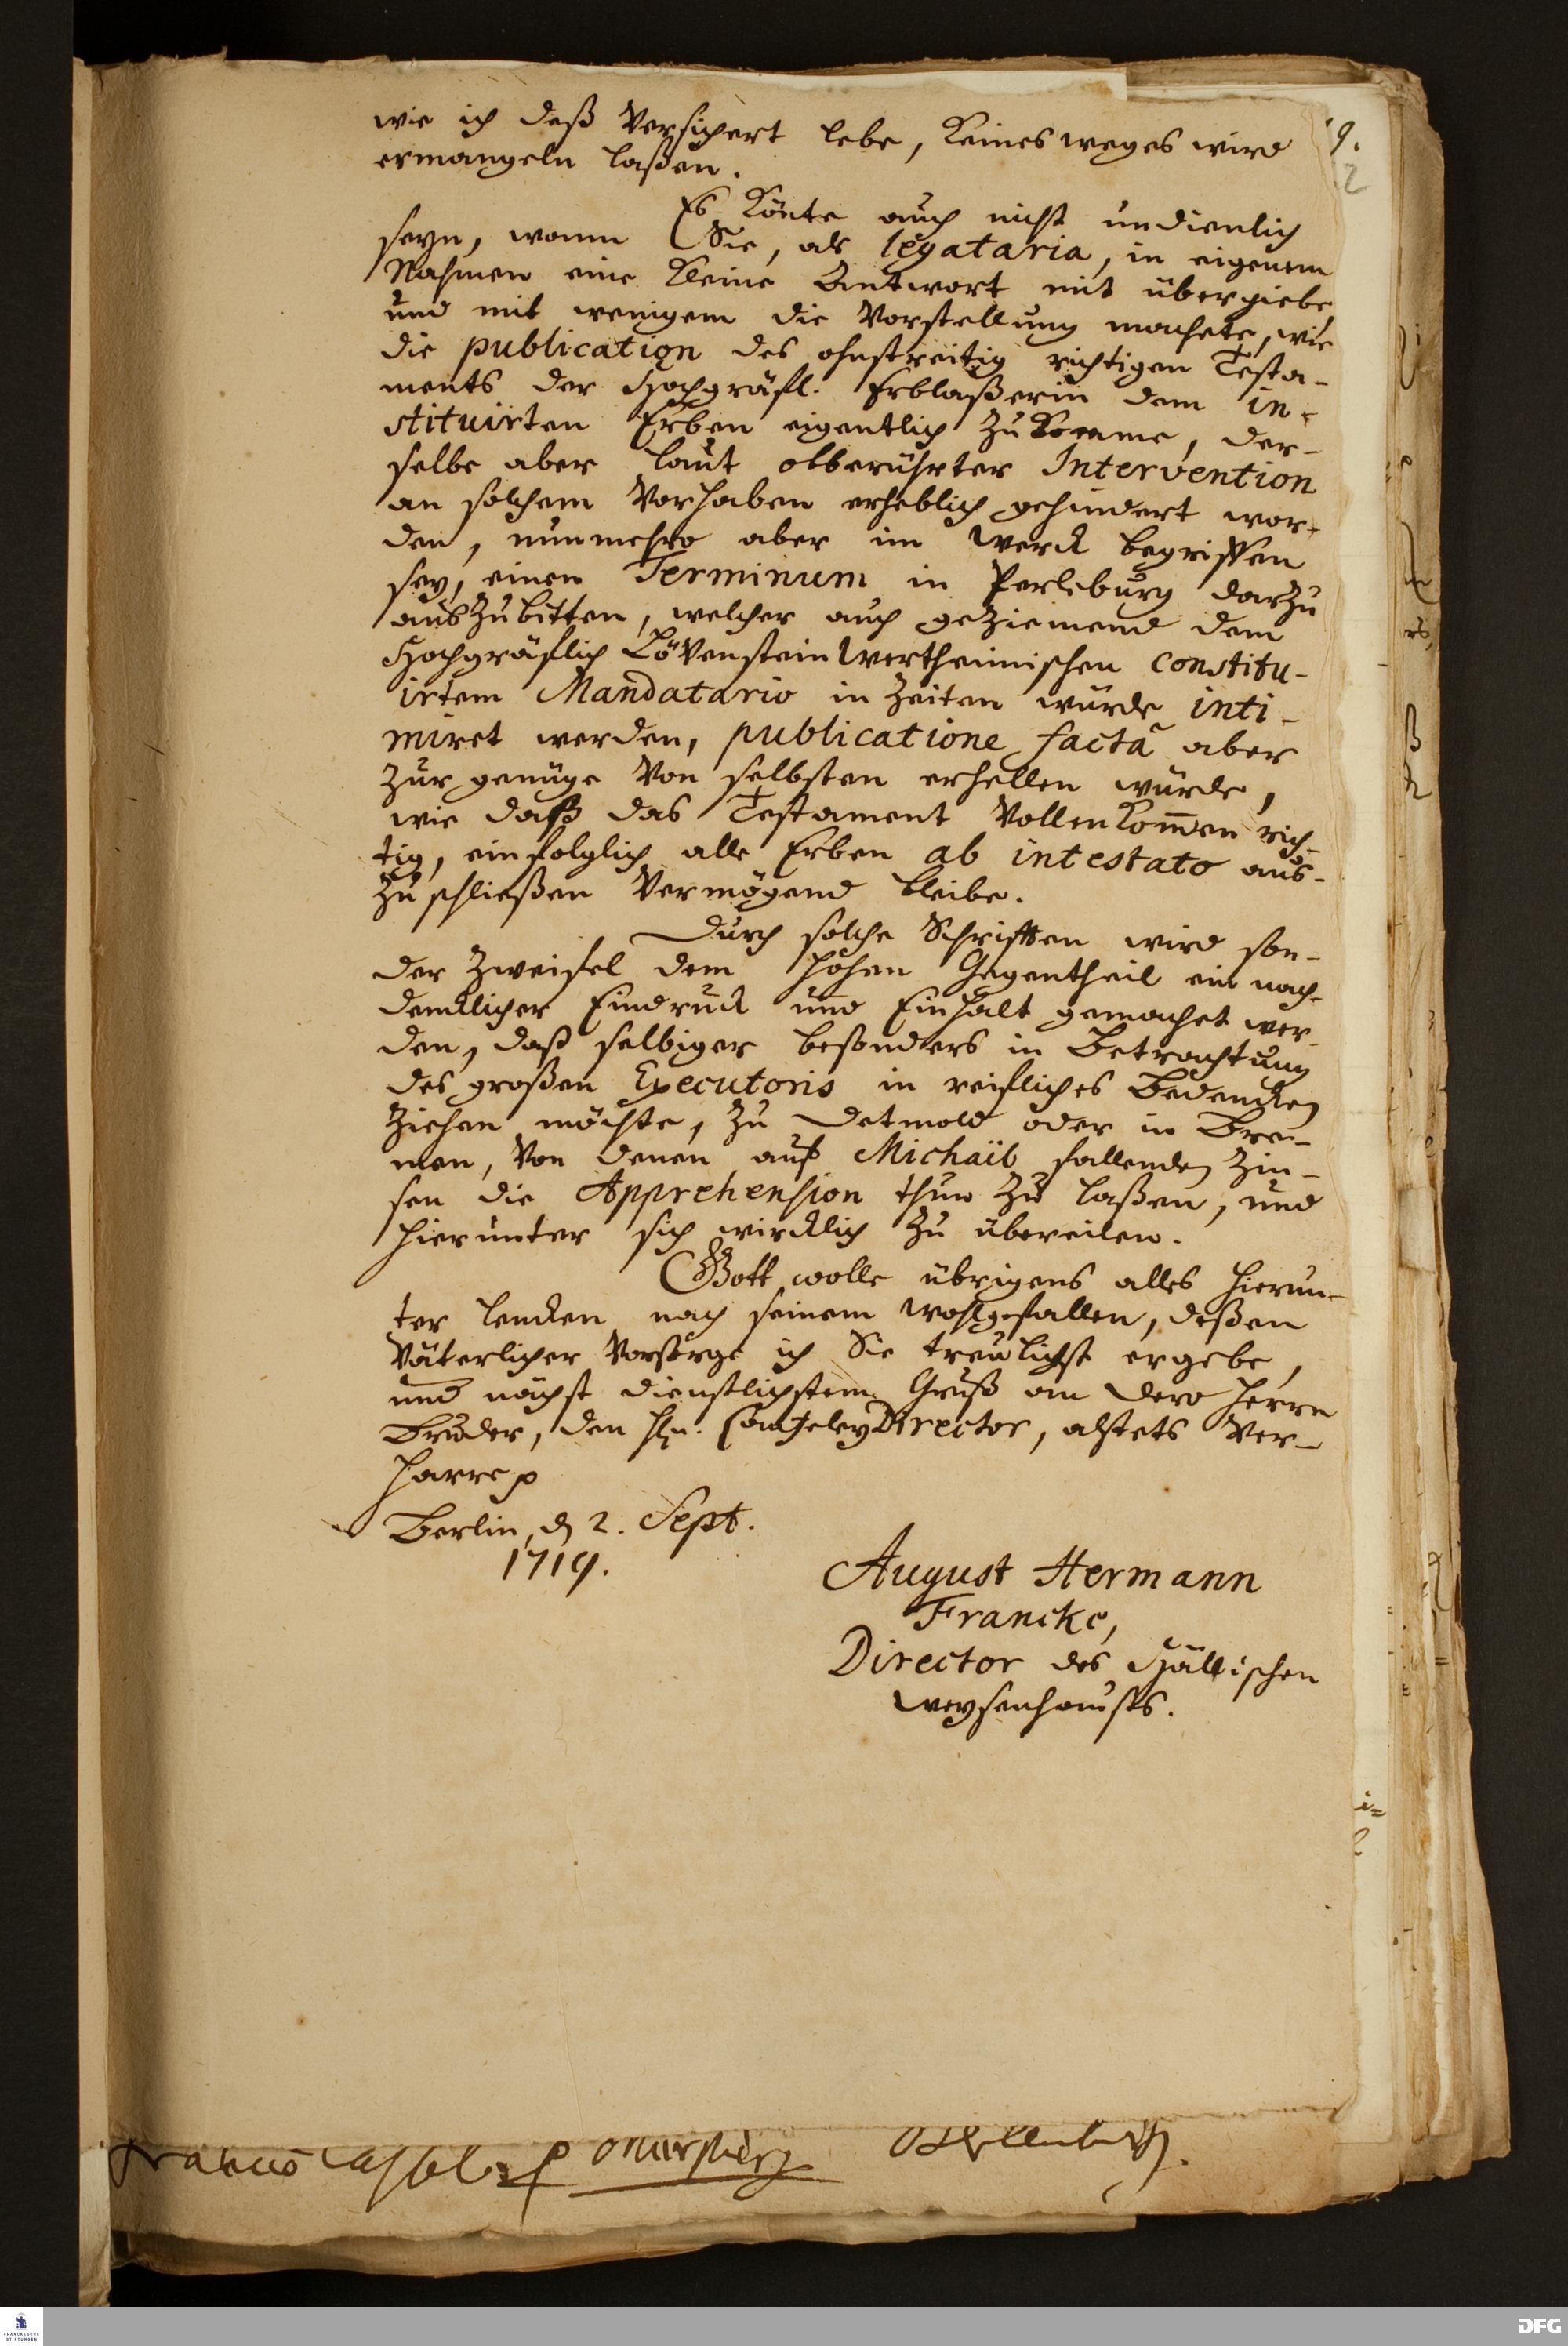 wie ich deß versichert lebe, keines weges wird
ermangeln laßen.
9.
2
Es könte auch nicht undienlich
seyn, wann Sie, als legataria, in eigenem
Nahmen eine kleine Antwort mit übergiebe,
und mit wenigem die Vorstellung machete, wie
die publication des ohnstreitig richtigen Testa-
ments der Hochgräfl. Erblaßerin dem in-
stituirten Erben eigentlich zukomme, der-
selbe aber laut obberührter Intervention
an solchem Vorhaben erheblich gehindert wor-
den, nunmehro aber im Werck begriffen
sey, einen Terminum in Perleburg darzu
auszubitten, welcher auch geziemend dem
Hochgräflich Lövenstein Wertheimischen constitu-
irtem Mandatario in Zeiten würde inti-
miret werden, publicatione factâ aber
zur genüge von selbsten erhellen würde,
wie daß das Testament vollenkom̄en rich-
tig, einfolglich alle Erben ab intestato aus-
zuschließen vermögend bleibe.
Durch solche Schrifften wird son-
der Zweifel dem hohen Gegentheil ein nach-
dencklicher Eindruck und Einhalt gemachet wer-
den, daß selbiger besonders in Betrachtung
des großen Executoris in reifliches Bedencken
ziehen möchte, zu Detmold oder in Bre-
men, von denen auf Michaël fallenden Zin-
sen die Apprehension thun zu laßen, und
hierunter sich wircklich zu übereilen.
Gott wolle übrigens alles hierun-
ter lencken nach seinem Wohlgefallen, deßen
Väterlicher Vorsorge ich Sie treulichst ergebe,
und nächst dienstlichstem Gruß an Dero Herrn
Bruder, den Hn. Cantzeley Director, alstets ver-
harre p
Berlin, d 2. Sept.
1719.
August Hermann
Francke,
Director des Hällischen
Weysenhauses.
FRANCKESCHE
STIFTUNGEN
DFG